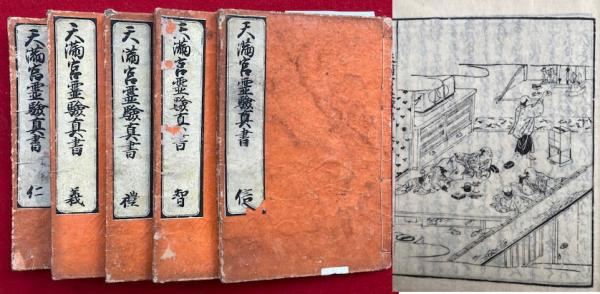 天満宮霊験真書 仁
天満宮霊験真書 義
天満宮霊験真書 禮
天満宮霊験真書 智
天満宮霊験真書 信